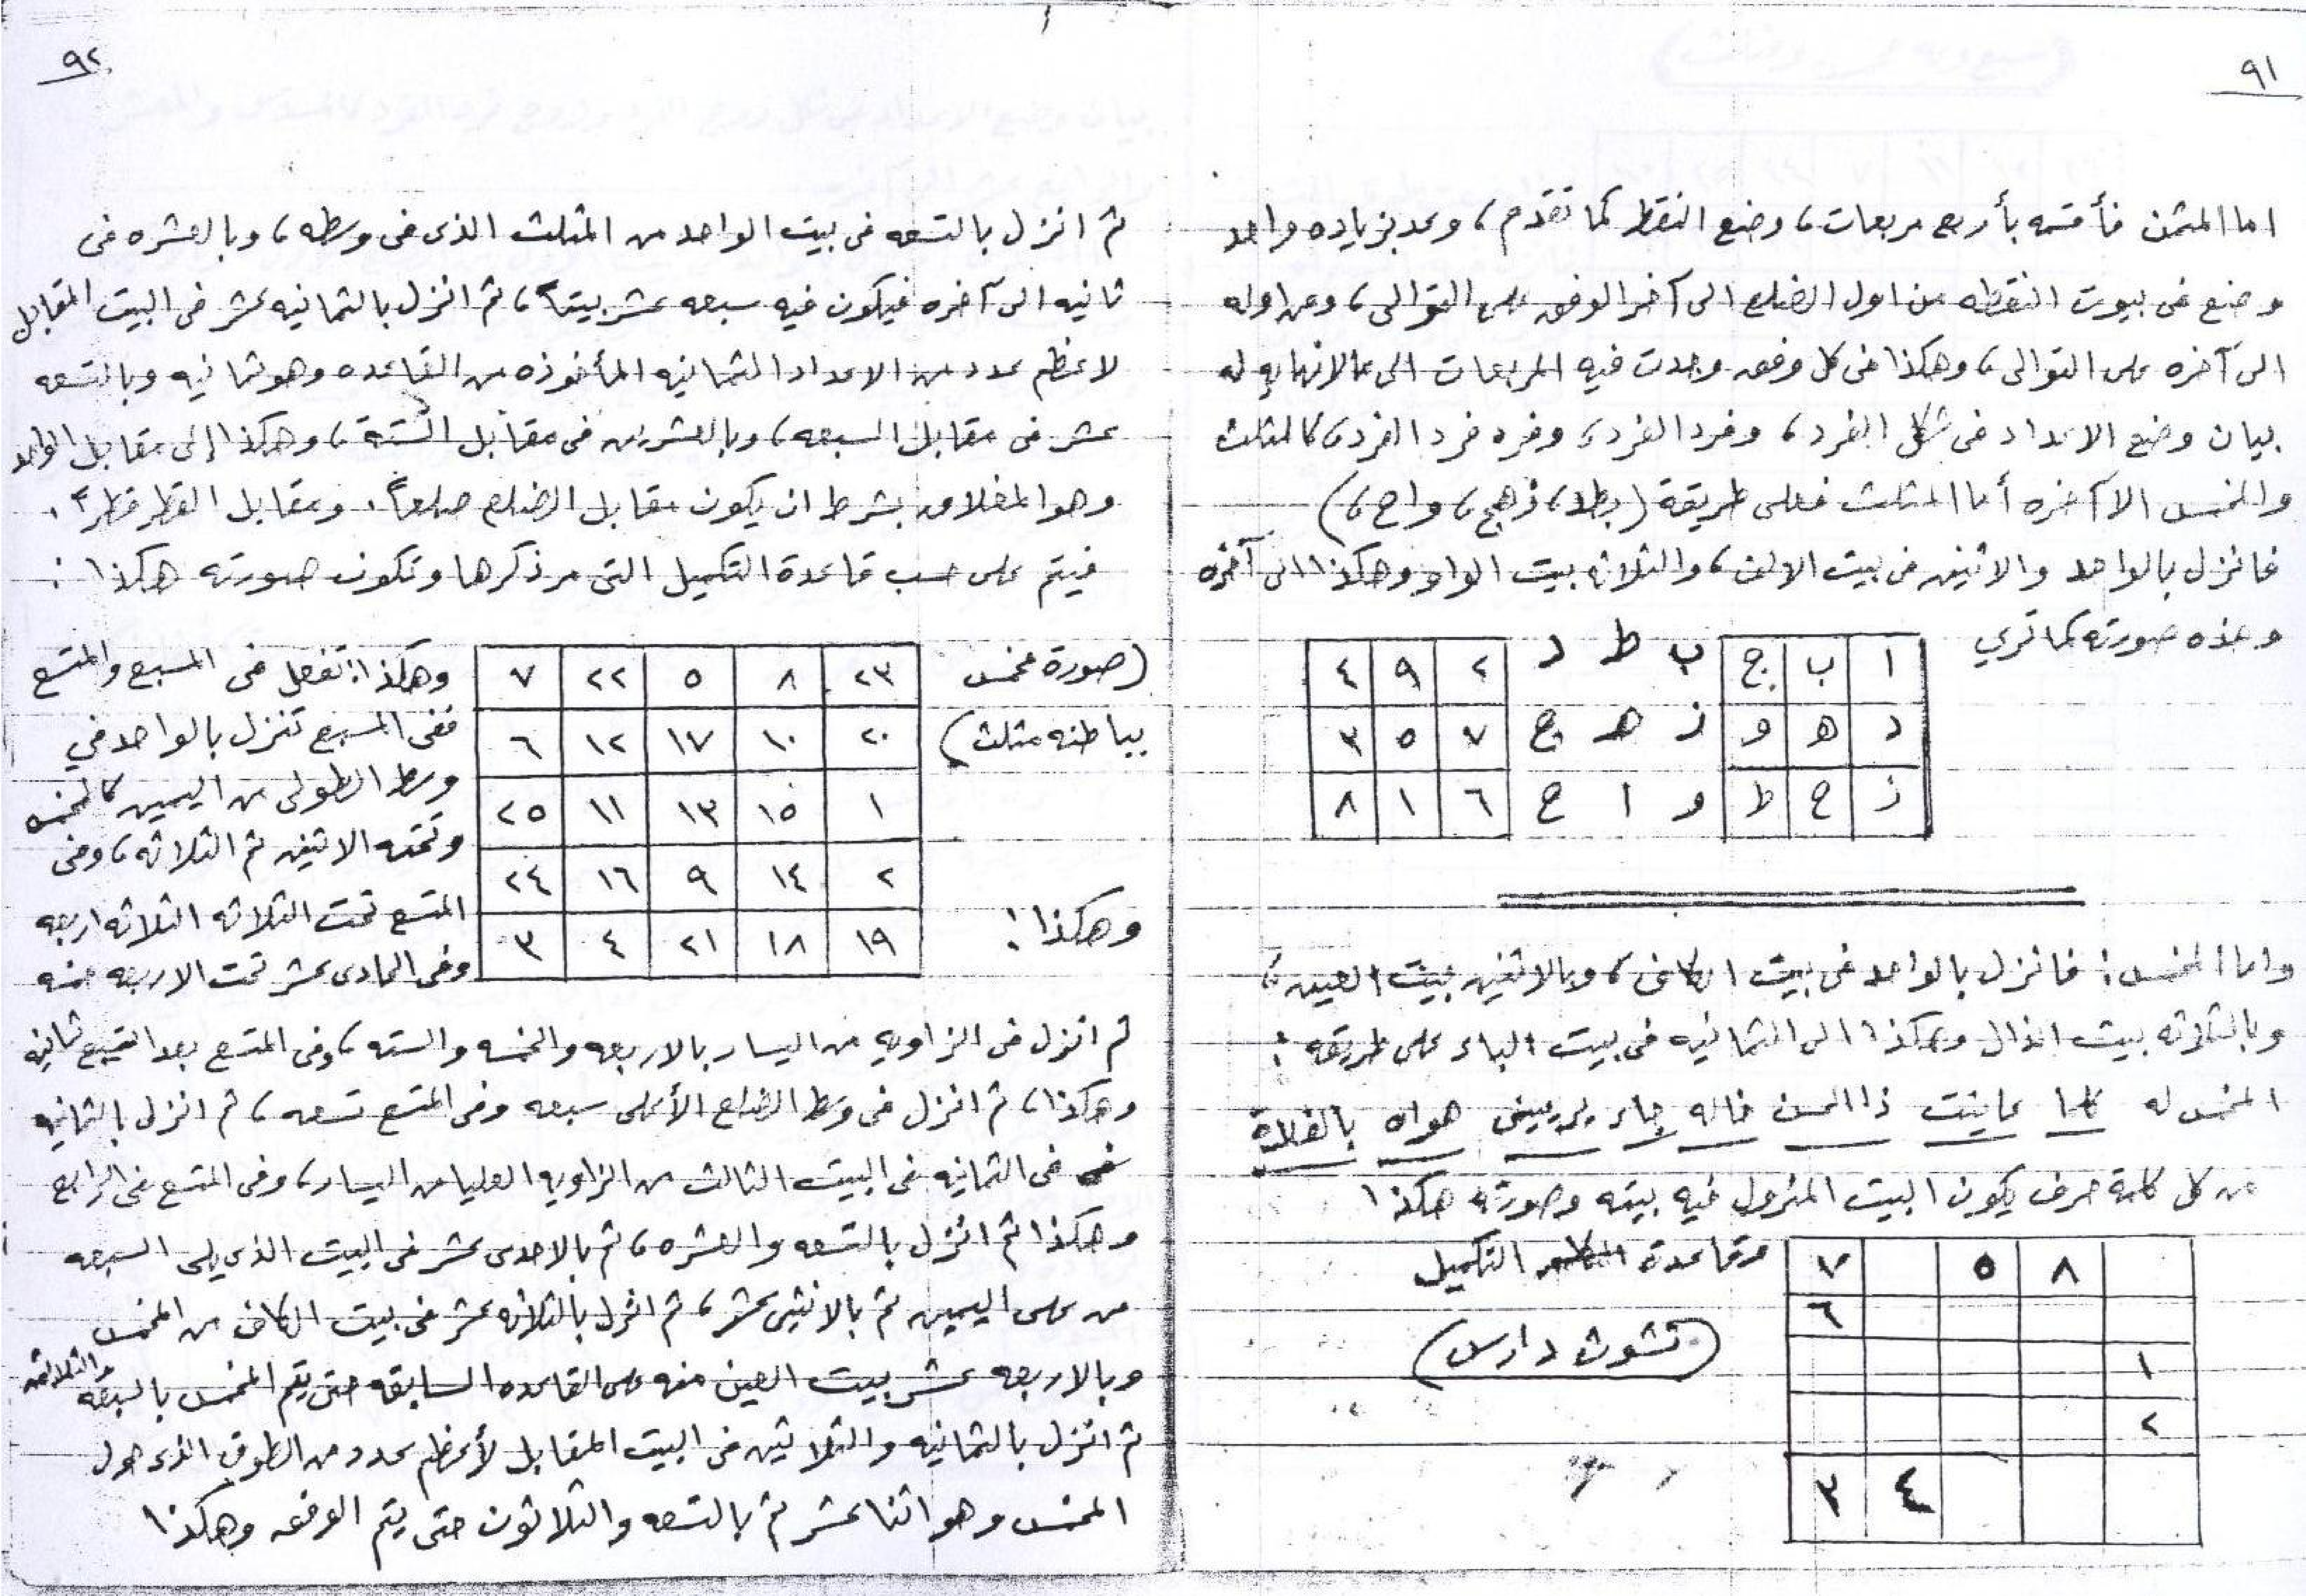 ٩١
اما المثمن فأقسمه بأربع مربعات، وضع النقط كما تقدم، وعد بزياده واحد
وضع فى بيوت النقطه من اول الضلع الى آخر الوفق على التوالى، ومن اوله
الى آخره على التوالى، وهكذا فى كل وفق وجدت فيه المربعات الى مالانهايه له
بيان وضع الاعداد فى شكل الفرد، وفرد الفرد، وفرد فرد الفرد، كالمثلث
والمخمس الا آخره أما المثلث فعلى طريقة (بطد، زهج، واح،)
فانزل بالواحد والاثنين فى بيت الالف، والثلاثه بيت الواو وهكذا الى آخره
وهذه صورته كما ترى
ا ب ج ب ط د ٢ ٩ ٤
د ه و ز ه ج ٧ ٥ ٣
ز ح ط و ا ح ٦ ١ ٨
واما المخمس: فانزل بالواحد فى بيت الكاف، وبالاثنين بيت العين،
وبالثلاثه بيت الذال وهكذا الى الثمانيه فى بيت الباء على طريقه:
المخمس له كلما عاينت ذا الحسن خاله جاء هواه
من كل كلمة حرف يكون البيت المنزول فيه بيته وصورته هكذا
وقاعدة التكميل
(تشوث دارس)
٨ ٥ ٧
٦
١
٢
٤ ٣
٩٢
ثم انزل بالتسعه فى بيت الواحد من المثلث الذى فى وسطه، وبالعشره فى
ثانيه الى آخره فيكون فيه سبعه عشر بيتاً، ثم انزل بالثمانيه عشر فى البيت المقابل
لاعظم عدد من الاعداد الثمانيه المأخوذه من القاعده وهو ثمانيه وبالتسعه
عشر فى مقابل السبعه، وبالعشرين فى مقابل الستة، وهكذا إلى مقابل الواحد
وهو المغلاق بشرط ان يكون مقابل الضلع ضلعاً. ومقابل القطر قطراً.
فيتم على حسب قاعدة التكميل التى مر ذكرها وتكون صورته هكذا:
(صورة مخمس
بباطنه مثلث)
وهكذا:
٢٣ ٨ ٥ ٢٢ ٧
٢٠ ١٠ ١٧ ١٢ ٦
١ ١٥ ١٣ ١١ ٢٥
٢ ١٤ ٩ ١٦ ٢٤
١٩ ١٨ ٢١ ٤ ٣
وهكذا: تفعل فى المسبع والمتسع
ففى المسبع تنزل بالواحد في
وسط الطولى من اليمين كالمخمس
وتحته الاثنين ثم الثلاثه، وفى
المتسع تحت الثلاثه الثلاثه اربعه
وفى الحادى عشر تحت الاربعه خمسه
ثم انزل فى الزاويه من اليسار بالاربعه والخمسه والسته، وفى المتسع بعد السبع ثمانيه
وهكذا، ثم انزل فى وسط الضلع الأعلى سبعه وفى المتسع تسعه، ثم انزل بالثمانيه
فى الثمانيه فى البيت الثالث من الزاويه العليا من اليسار، وفى المتسع فى الرابع
وهكذا ثم انزل بالتسعه والعشره، ثم بالاحدى عشر فى البيت الذى يلى السبعه
من على اليمين ثم بالاثنى عشر، ثم انزل بالثلاثه عشر فى بيت الكاف من المخمس
وبالاربعه عشر بيت العين منه على القاعده السابقه حتى يتم المخمس بالسبعه والثلاثين
ثم انزل بالثمانيه والثلاثين فى البيت المقابل لأعظم عدد من الطوق الذى حول
المخمس وهو اثنا عشر ثم بالتسعه والثلاثون حتى يتم الوفق وهكذا